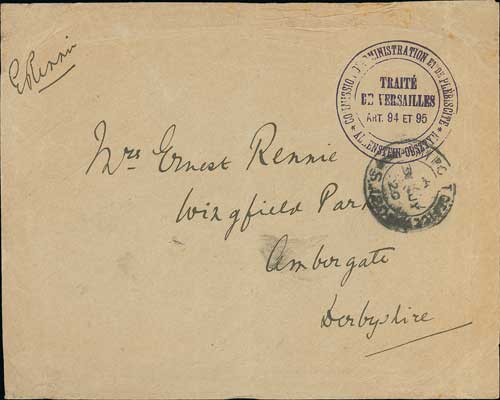 ERennie
COMMISSION D'ADMINISTRATION ET DE PLÉBISCITE
TRAITÉ
DE VERSAILLES
ART. 94 ET 95
ALLENSTEIN-OLSZTYN
Mrs Ernest Rennie
Wingfield Park
Ambergate
Derbyshire